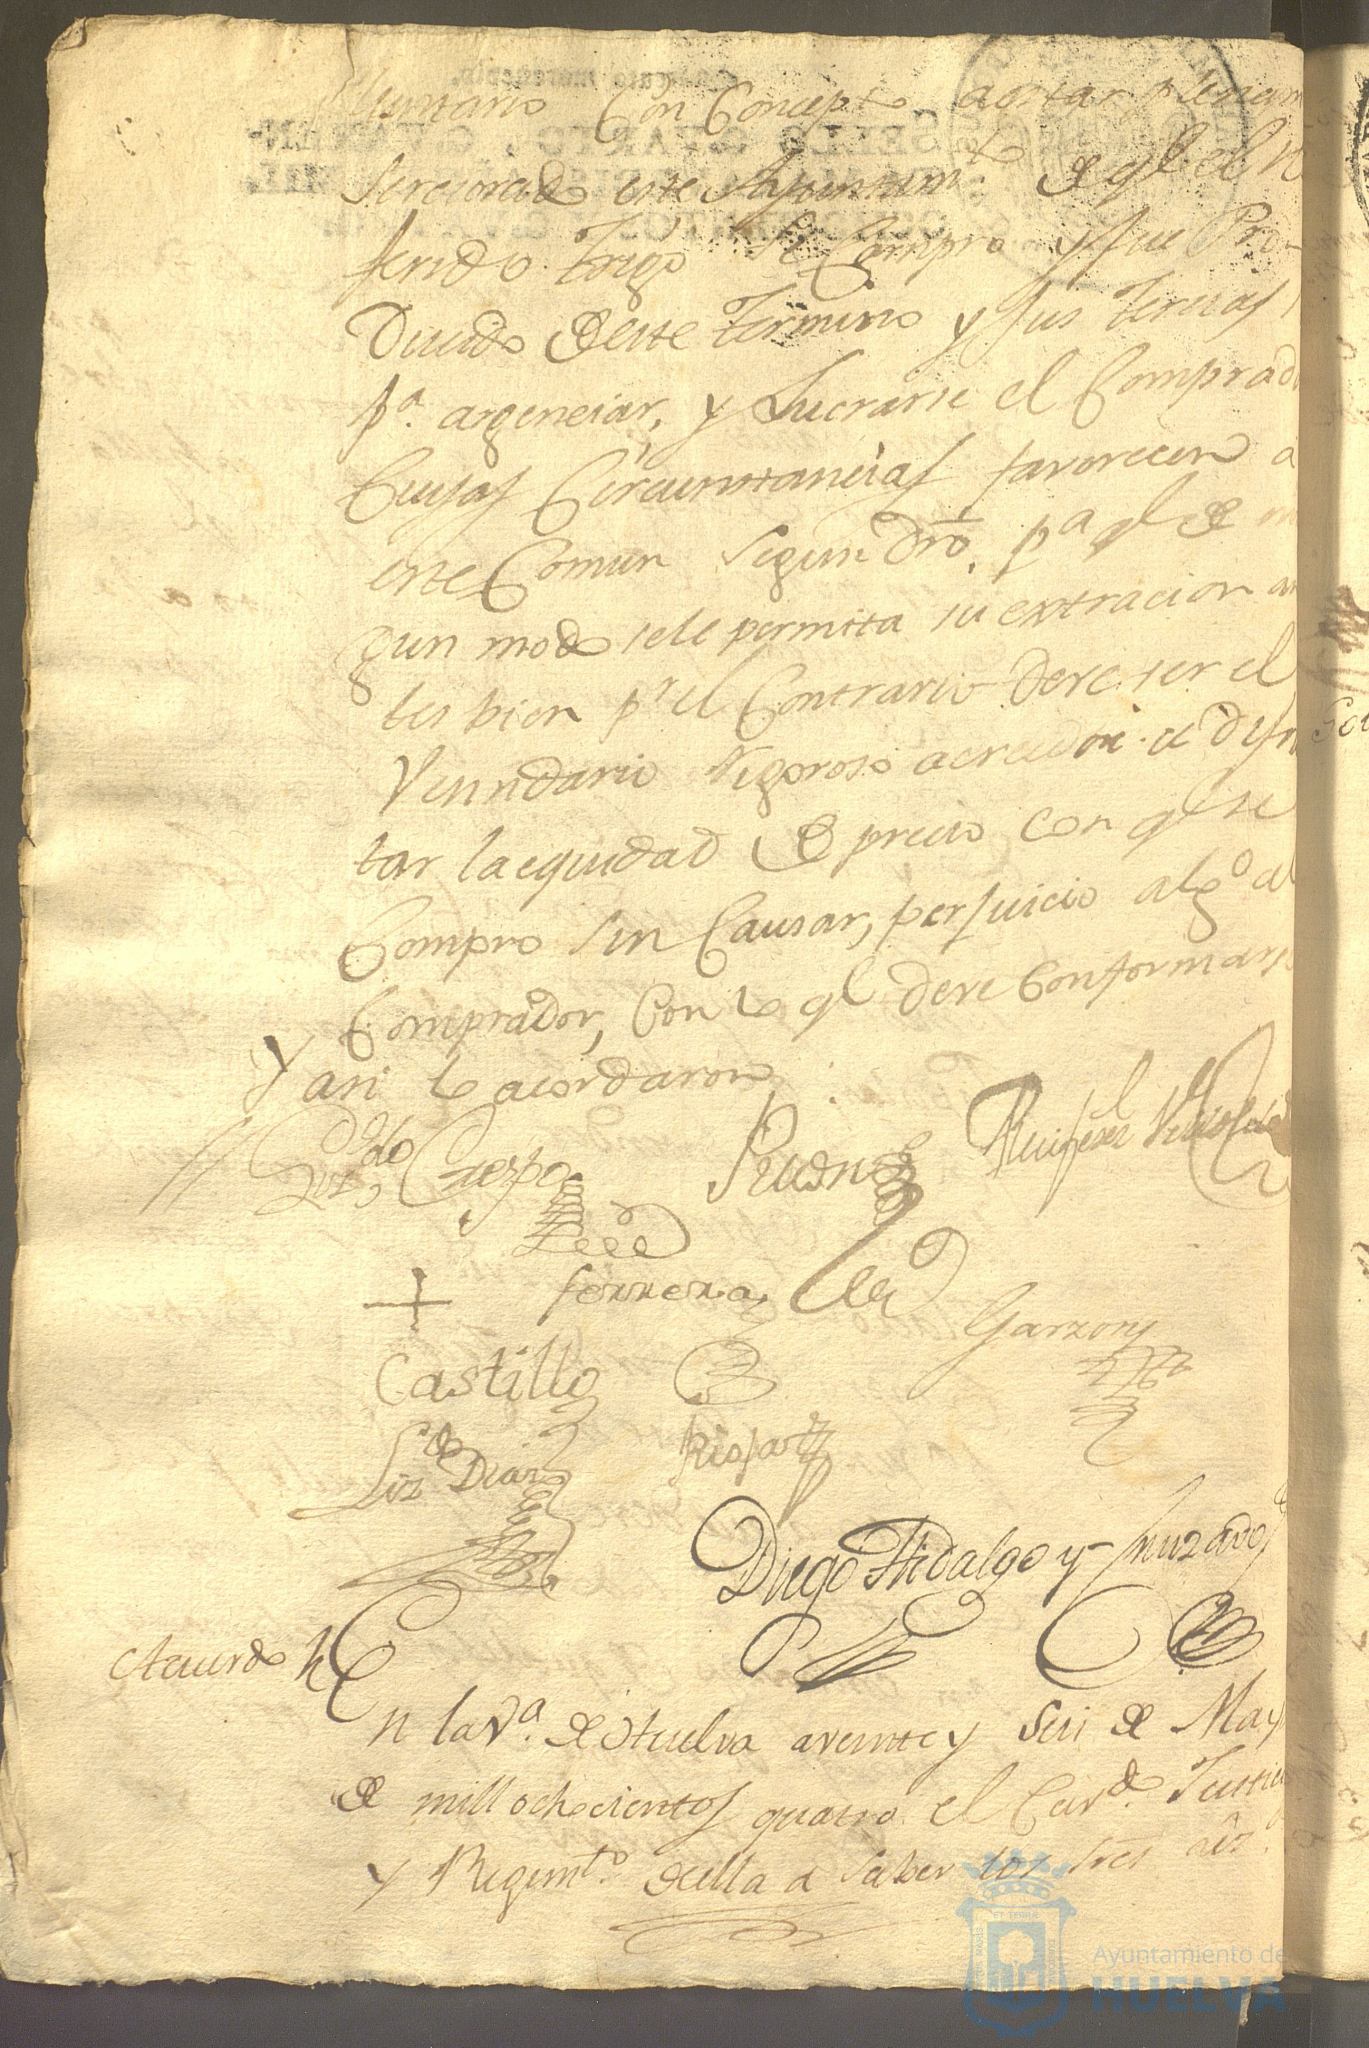 Con Concepto a estar plenam
serciorado este Ayuntam.to de q.l el
ferido trigo se Compro y fue Pro
ducido de este termino y sus tercias
p.a argenciar, y Lucrarse el Comprad
Cuyas Circunstancias favorecen a
este Comun segun Dro. p.a q.l de
gun modo se le permita su extracion an
tes bien p.r el Contrario deve ser el
Vecindario rigoroso acreedor a disfru
tar la equidad de precio con q.l se
Compro sin Causar, perjuicio alg.o al
Comprador, Con lo q.l deve Conformarse
Y asi lo acordaron
Liz.do Crespo
Ferrera
Garzon
Castillo
Liz.do Diaz
Diego Hidalgo y
Acuerdo
En la V.a de Huelva a veinte y seis de May
de mill ochocientos quatro el Cav.do Justicia
y Regim.to de ella a saber los sres
Ayuntamiento de
HUELVA